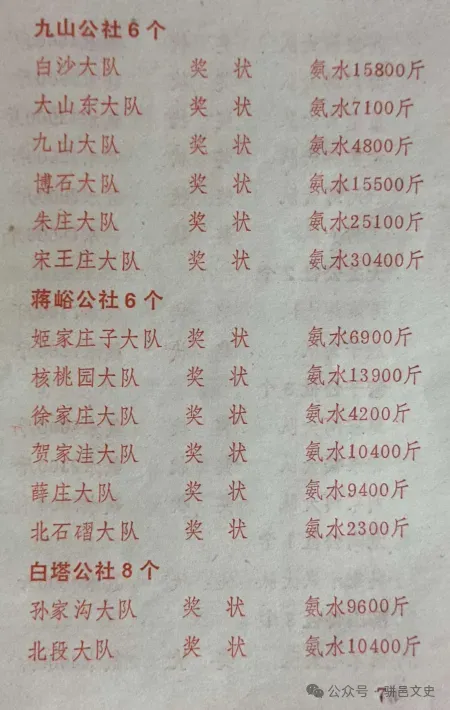 九山公社6个
白沙大队 奖状 氨水15800斤
大山东大队 奖状 氨水7100斤
九山大队 奖状 氨水4800斤
博石大队 奖状 氨水15500斤
朱庄大队 奖状 氨水25100斤
宋王庄大队 奖状 氨水30400斤
蒋峪公社6个
姬家庄子大队 奖状 氨水6900斤
核桃园大队 奖状 氨水13900斤
徐家庄大队 奖状 氨水4200斤
贺家洼大队 奖状 氨水10400斤
薛庄大队 奖状 氨水9400斤
北石磖大队 奖状 氨水2300斤
白塔公社8个
孙家沟大队 奖状 氨水9600斤
北段大队 奖状 氨水10400斤
公众号·骈邑文史